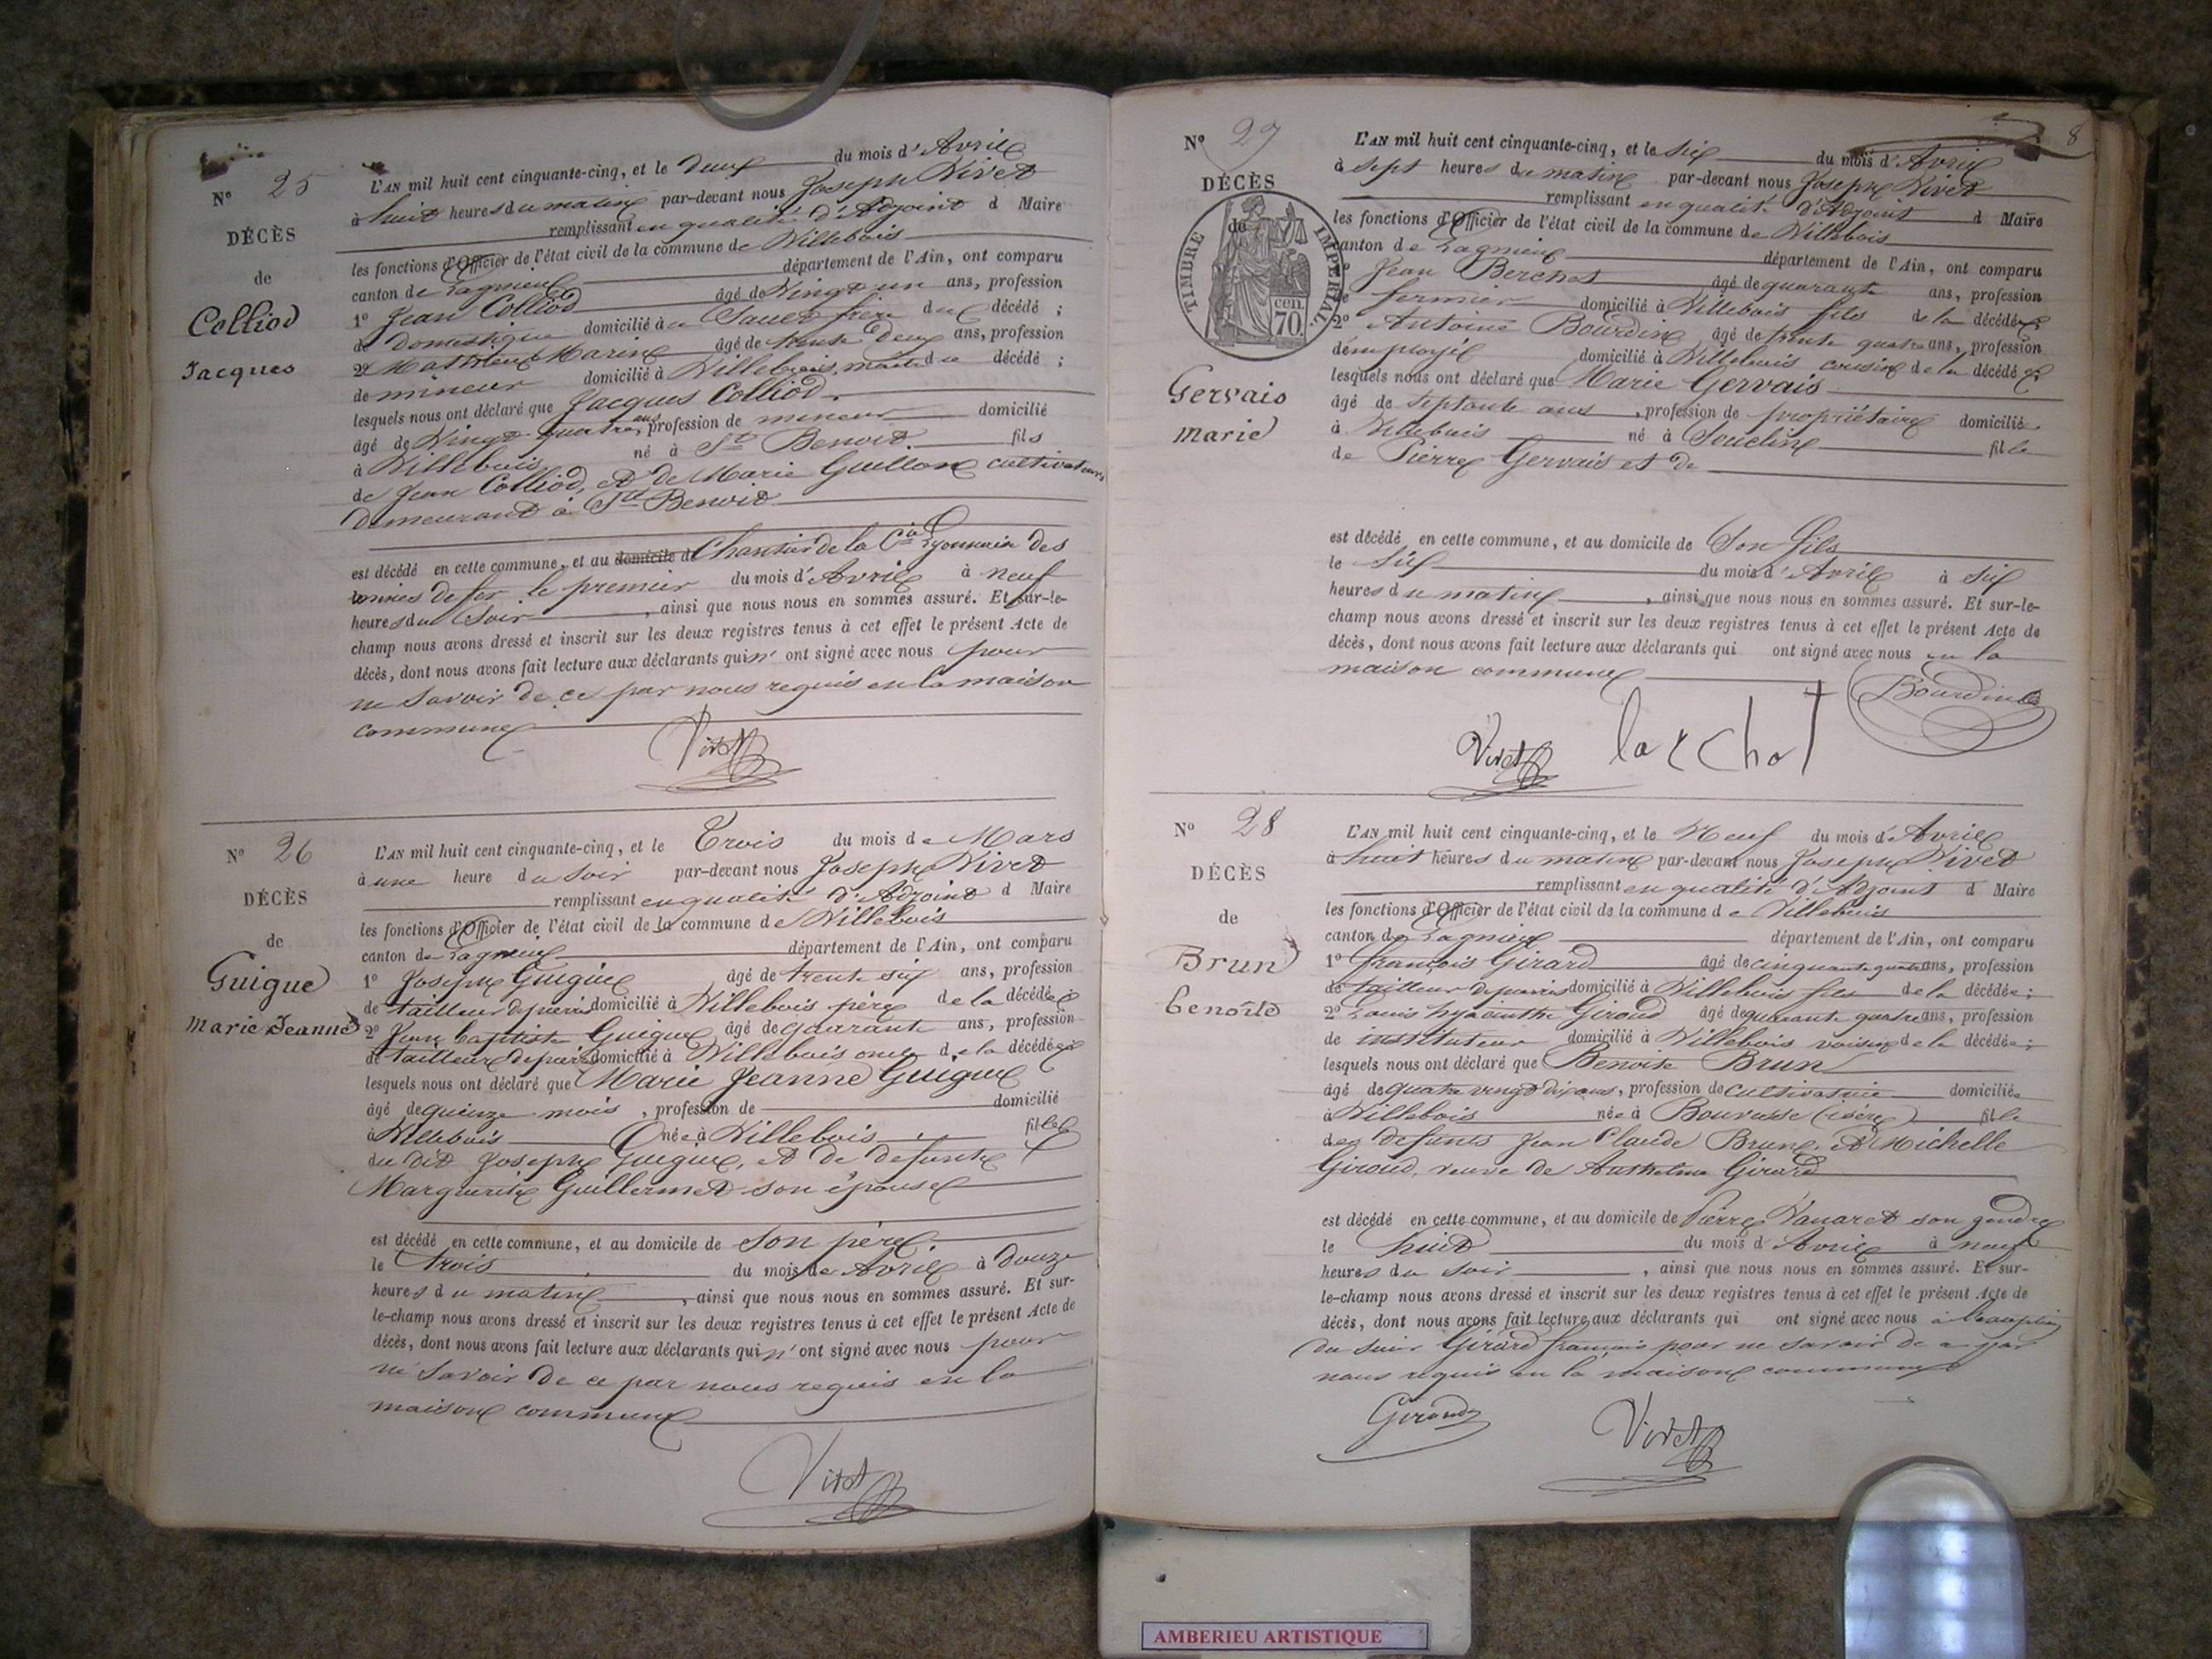 N° 25
DÉCÈS
de
Colliod
Jacques
L'AN mil huit cent cinquante-cinq, et le deux du mois d'Avril
à huit heures du matin par-devant nous Joseph Vivet
remplissant en qualité d'Adjoint d Maire
les fonctions d'Officier de l'état civil de la commune de Villebois
canton de Lagnieu département de l'Ain, ont comparu
1° Jean Colliod âgé de Vingt un ans, profession
de domestique domicilié à frère du décédé ;
2° Matthieu Marin âgé de trente deux ans, profession
de mineur domicilié à Villebois, du décédé ;
lesquels nous ont déclaré que Jacques Colliod
âgé de Vingt-quatre ans, profession de mineur domicilié
à Villebois né à St Benoit fils
de Jean Colliod, et de Marie Guillon cultivateurs
demeurant à St Benoit
est décédé en cette commune, et au domicile de Chantier de la Cie Lyonnaise des
mines de fer le premier du mois d'Avril à neuf
heures du Soir, ainsi que nous nous en sommes assuré. Et sur-le-
champ nous avons dressé et inscrit sur les deux registres tenus à cet effet le présent Acte de
décès, dont nous avons fait lecture aux déclarants qui n'ont signé avec nous pour
ne savoir de ce par nous requis en la maison
commune
Vivet
N° 26
DÉCÈS
de
Guigue
Marie Jeanne
L'AN mil huit cent cinquante-cinq, et le Trois du mois de Mars
à une heure du soir par-devant nous Joseph Vivet
remplissant en qualité d'Adjoint d Maire
les fonctions d'Officier de l'état civil de la commune de Villebois
canton de Lagnieu département de l'Ain, ont comparu
1° Joseph Guigue âgé de trente six ans, profession
de tailleur de pierres domicilié à Villebois père de la décédée ;
2° Jean Baptiste Guigue âgé de quarante ans, profession
de tailleur de pierres domicilié à Villebois oncle de la décédée ;
lesquels nous ont déclaré que Marie Jeanne Guigue
âgé de quinze mois, profession de domicilié
à Villebois née à Villebois fille
du dit Joseph Guigue, et de defunte
Marguerite Guillermet son épouse
est décédé en cette commune, et au domicile de son père
le trois du mois de Avril à douze
heures du matin, ainsi que nous nous en sommes assuré. Et sur-
le-champ nous avons dressé et inscrit sur les deux registres tenus à cet effet le présent Acte de
décès, dont nous avons fait lecture aux déclarants qui n'ont signé avec nous pour
ne savoir de ce par nous requis en la
maison commune
Vivet
8
N° 27
DÉCÈS
de
TIMBRE IMPÉRIAL
70 cen.
Gervais
Marie
L'AN mil huit cent cinquante-cinq, et le six du mois d'Avril
à sept heures du matin par-devant nous Joseph Vivet
remplissant en qualité d'Adjoint d Maire
les fonctions d'Officier de l'état civil de la commune de Villebois
canton de Lagnieu département de l'Ain, ont comparu
1° Jean Berchot âgé de quarante ans, profession
de fermier domicilié à Villebois fils de la décédée ;
2° Antoine Bourdin âgé de trente quatre ans, profession
d'employé domicilié à Villebois cousin de la décédée ;
lesquels nous ont déclaré que Marie Gervais
âgé de septante ans, profession de propriétaire domicilié
à Villebois né à Souclin fille
de Pierre Gervais et de
est décédé en cette commune, et au domicile de Son fils
le six du mois d'Avril à six
heures du matin, ainsi que nous nous en sommes assuré. Et sur-le-
champ nous avons dressé et inscrit sur les deux registres tenus à cet effet le présent Acte de
décès, dont nous avons fait lecture aux déclarants qui ont signé avec nous en la
maison commune
Bourdin
Vivet
N° 28
DÉCÈS
de
Brun
Benoîte
L'AN mil huit cent cinquante-cinq, et le Neuf du mois d'Avril
à huit heures du matin par-devant nous Joseph Vivet
remplissant en qualité d'Adjoint d Maire
les fonctions d'Officier de l'état civil de la commune de Villebois
canton de Lagnieu département de l'Ain, ont comparu
1° François Girard âgé de cinquante quatre ans, profession
de tailleur de pierres domicilié à Villebois fils de la décédée ;
2° Louis hyacinthe Giroud âgé de quarante quatre ans, profession
de instituteur domicilié à Villebois voisin de la décédée ;
lesquels nous ont déclaré que Benoite Brun
âgé de quatre vingt dix ans, profession de cultivatrice domiciliée
à Villebois née à Bouvesse (isère) fille
des defunts Jean Claude Brun, et Michelle
Giroud, veuve de Anthelme Girard
est décédé en cette commune, et au domicile de Pierre Vanaret son gendre
le huit du mois d'Avril à neuf
heures du soir, ainsi que nous nous en sommes assuré. Et sur-
le-champ nous avons dressé et inscrit sur les deux registres tenus à cet effet le présent Acte de
décès, dont nous avons fait lecture aux déclarants qui ont signé avec nous à l'exception
du sieur Girard françois pour ne savoir de ce par
nous requis en la maison commune
Giroud
Vivet
AMBERIEU ARTISTIQUE